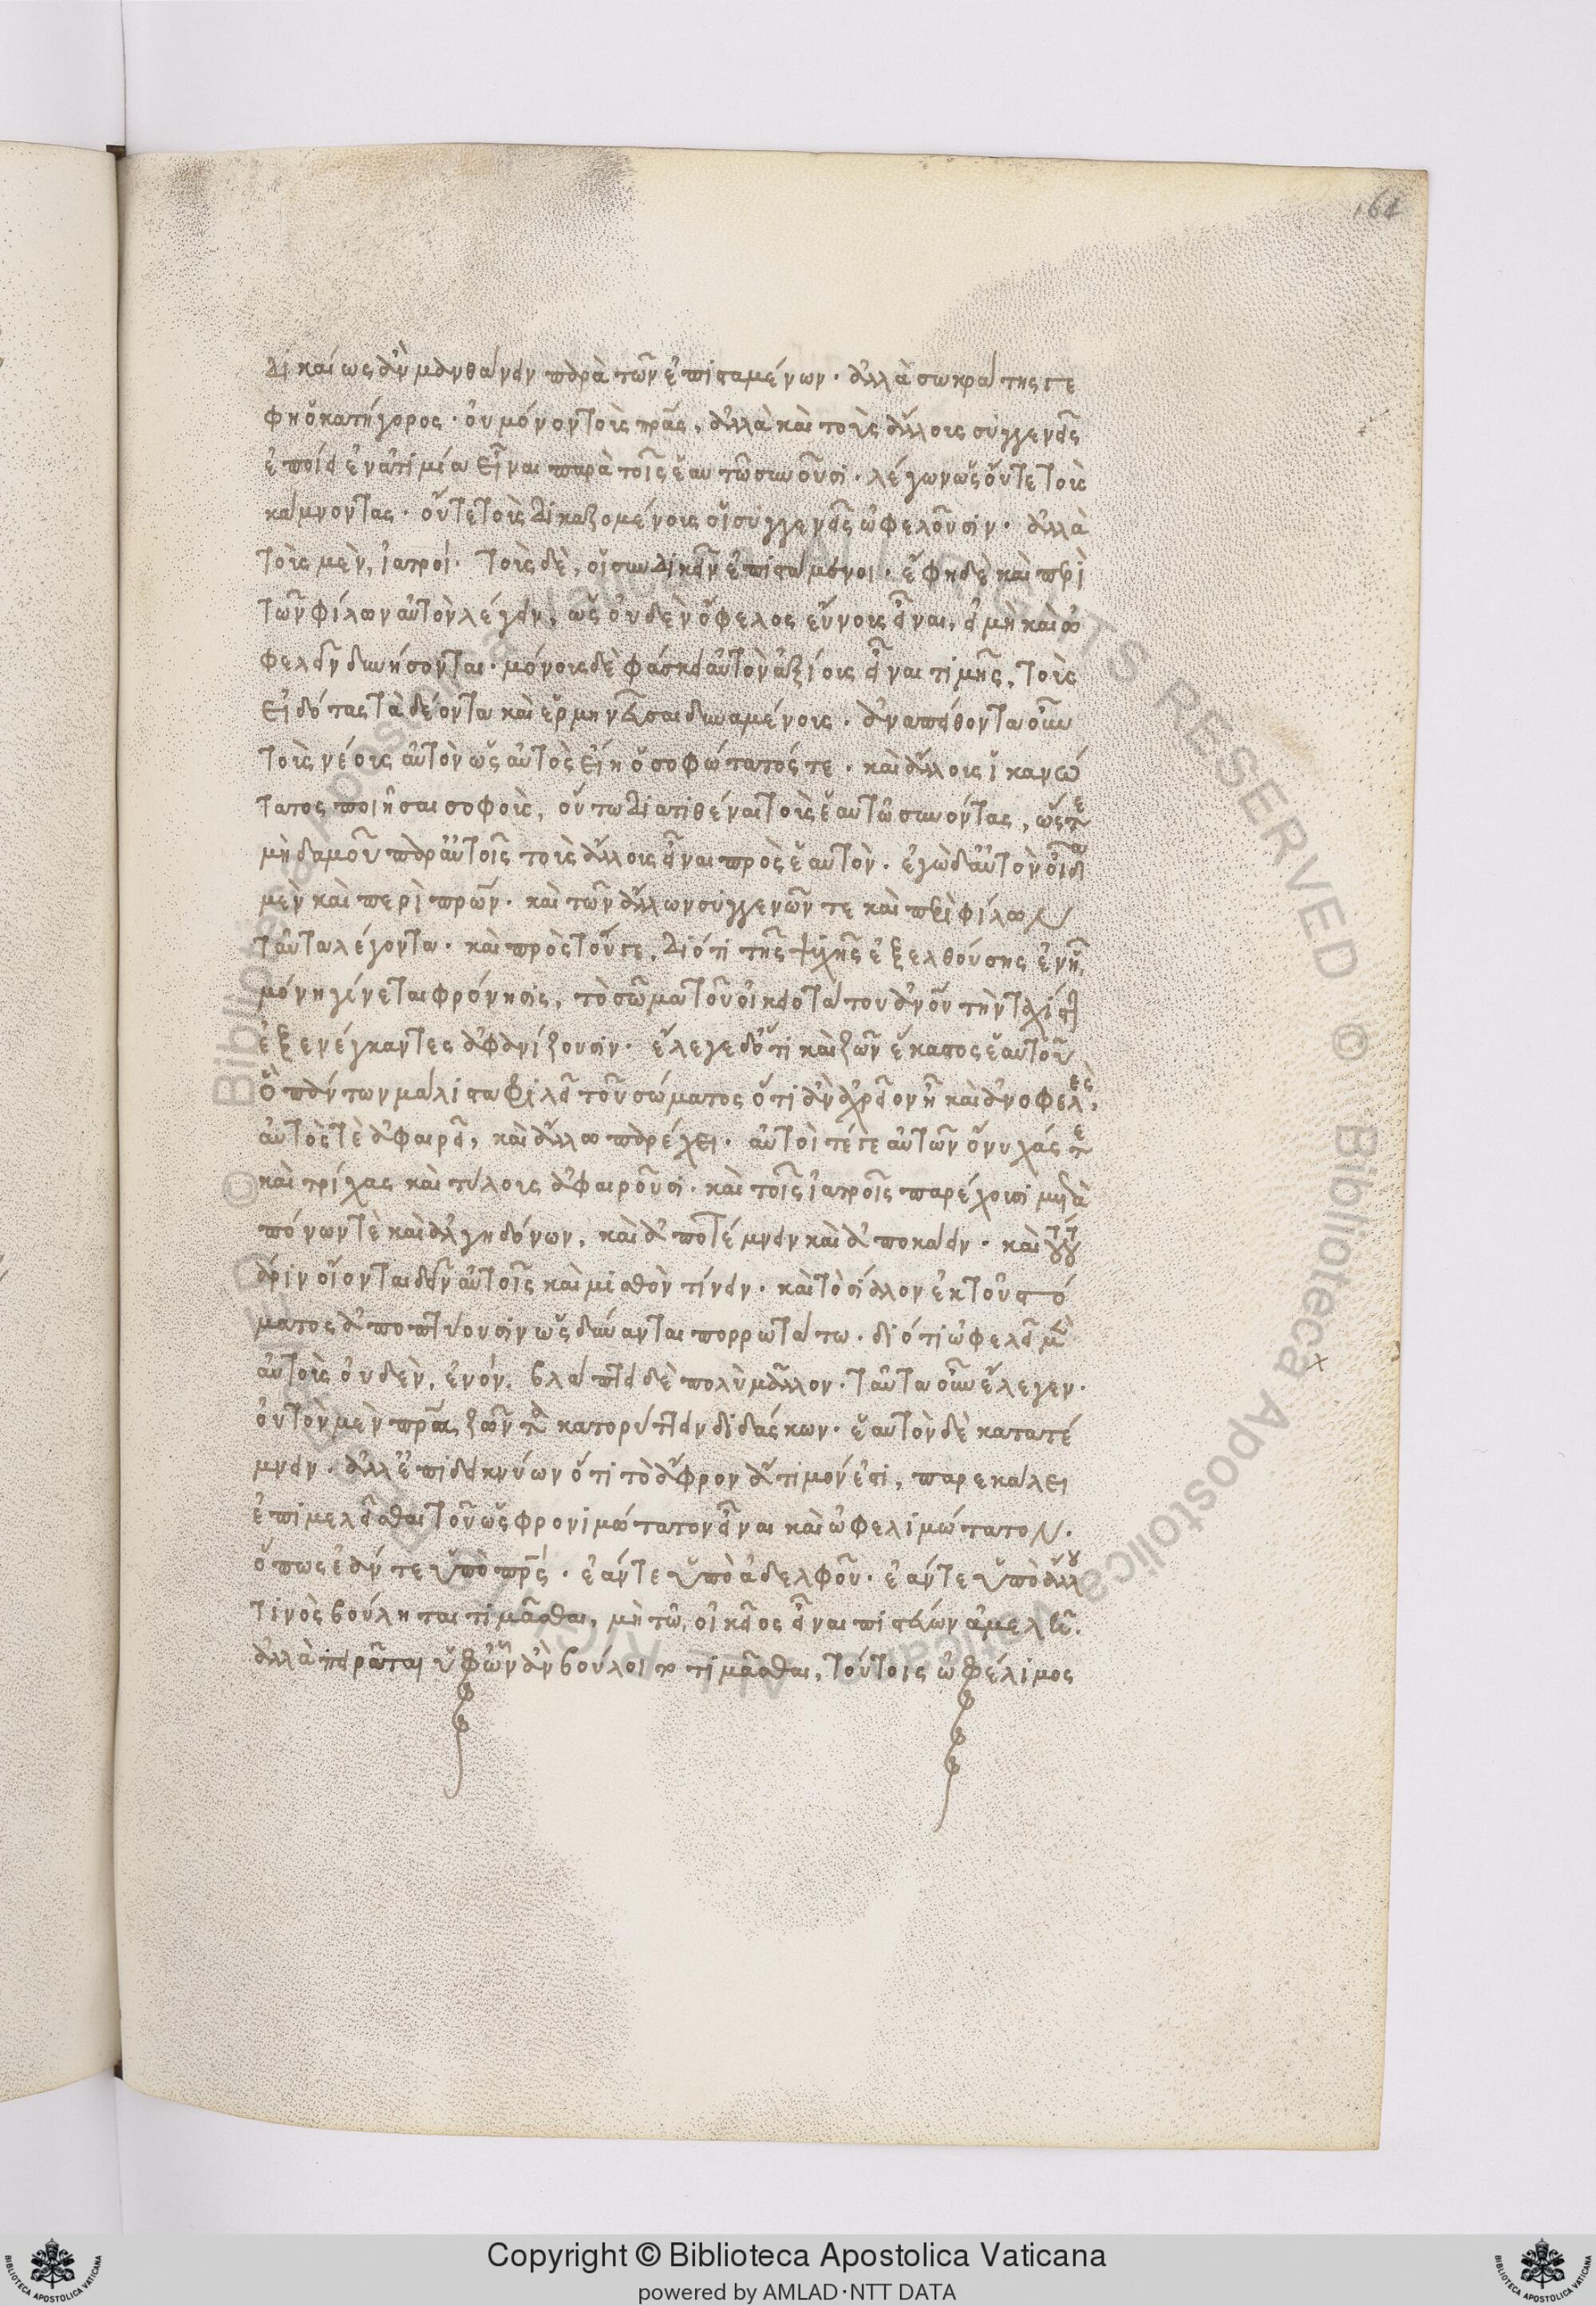 164
δικαίως ἂν μανθάνειν παρὰ τῶν ἐπισταμένων· ἀλλὰ σωκράτης γε
φη ὁ κατήγορος· οὐ μόνον τοὺς πρας, ἀλλὰ καὶ τοὺς ἄλλους συγγενεῖς
ἐποίει ἐν ἀτιμία εἶναι παρὰ τοῖς ἑαυτῶ συνοῦσι· λέγων ὡς οὔτε τοὺς
κάμνοντας· οὔτε τοὺς δικαζομένους οἱ συγγενεῖς ὠφελοῦσιν· ἀλλὰ
τοὺς μὲν, ἰατροί· τοὺς δὲ, οἱ συνδικεῖν ἐπιστάμενοι· ἔφη δὲ καὶ περὶ
τῶν φίλων αὐτὸν λέγειν, ὡς οὐδὲν ὄφελος εὔνους εἶναι, εἰ μὴ καὶ ὠ
φελεῖν δυνήσονται· μόνους δὲ φάσκει αὐτὸν ἀξίους εἶναι τιμῆς, τοὺς
εἰδότας τὰ δέοντα καὶ ἑρμηνεῦσαι δυναμένους· ἀναπείθοντα οὖν
τοὺς νέους αὐτὸν ὡς αὐτὸς εἴη ὁ σοφώτατός τε· καὶ ἄλλους ἱκανώ
τατος ποιῆσαι σοφοὺς, οὕτω διατιθέναι τοὺς ἑαυτῶ συνόντας, ὥστε
μὴδαμοῦ παρ αὐτοῖς τοὺς ἄλλους εἶναι πρὸς ἑαυτὸν· ἐγὼ δ αὐτὸν οἶδα
μὲν καὶ περὶ πρων· καὶ τῶν ἄλλων συγγενῶν τε καὶ περὶ φίλων
ταῦτα λέγοντα· καὶ πρὸς τούτε, διότι τῆς ψυχῆς ἐξελθούσης ἐν ῇ
μόνη γίνεται φρόνησις, τὸ σῶμα τοῦ οἰκειοτάτου ἀνου τὴν ταχίστην
ἐξενέγκαντες ἀφανίζουσιν· ἔλεγε δ ὅτι καὶ ζῶν ἕκαστος ἑαυτοῦ
ὃ πάντων μάλιστα φιλεῖ τοῦ σώματος ὅτι ἂν ἀχρεῖον ῇ καὶ ἀνωφελὲς,
αὐτὸς τὲ ἀφαιρεῖ, καὶ ἄλλω παρέχει· αὐτοὶ τέ γε αὐτῶν ὄνυχάς τε
καὶ τρίχας καὶ τύλους ἀφαιροῦσι· καὶ τοῖς ἰατροῖς παρέχουσι μετὰ
πόνων τὲ καὶ ἀλγηδόνων, καὶ ἀποτέμνειν καὶ ἀποκάειν· καὶ τούτου
χάριν οἴονται δεῖν αὐτοῖς καὶ μισθὸν τίνειν· καὶ τὸ σίαλον ἐκ τοῦ στό
ματος ἀποπτύουσιν ὡς δύνανται πορρωτάτω· διότι ὠφελεῖ μὲν
αὐτοὺς οὐδὲν, ἐνόν, βλάπτει δὲ πολὺ μᾶλλον· ταῦτα οὖν ἔλεγεν·
οὐ τὸν μὲν πρα, ζῶντα κατορύττειν διδάσκων· ἑαυτὸν δὲ κατατέ
μνειν· ἀλλ ἐπιδεικνύων ὅτι τὸ ἄφρον ἄτιμόν ἐστι, παρεκάλει
ἐπιμελεῖσθαι τοῦ ὡς φρονιμώτατον εἶναι καὶ ὠφελιμώτατον·
ὅπως ἐάν τε ὑπὸ πρς· ἐάν τε ὑπὸ ἀδελφοῦ· ἐάν τε ὑπὸ ἄλλου
τινὸς βούληται τιμᾶσθαι, μὴ τῶ, οἰκεῖος εἶναι πιστεύων ἀμελῆ·
ἀλλὰ πειρᾶται ὑφ ὧν ἂν βούλοιτο τιμᾶσθαι, τούτοις ὠφέλιμος
© Biblioteca Apostolica Vaticana ALL RIGHTS RESERVED
Copyright © Biblioteca Apostolica Vaticana
powered by AMLAD·NTT DATA
BIBLIOTECA APOSTOLICA VATICANA
BIBLIOTECA APOSTOLICA VATICANA